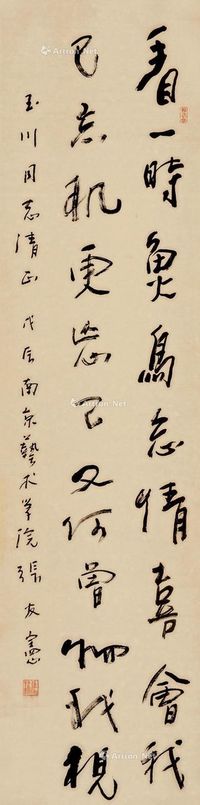 看一時魚鳥忘情喜會我
已忘机更忘己又何曾物我視
玉川同志清正 戊辰南京藝术学院張友憲
Artron.Net